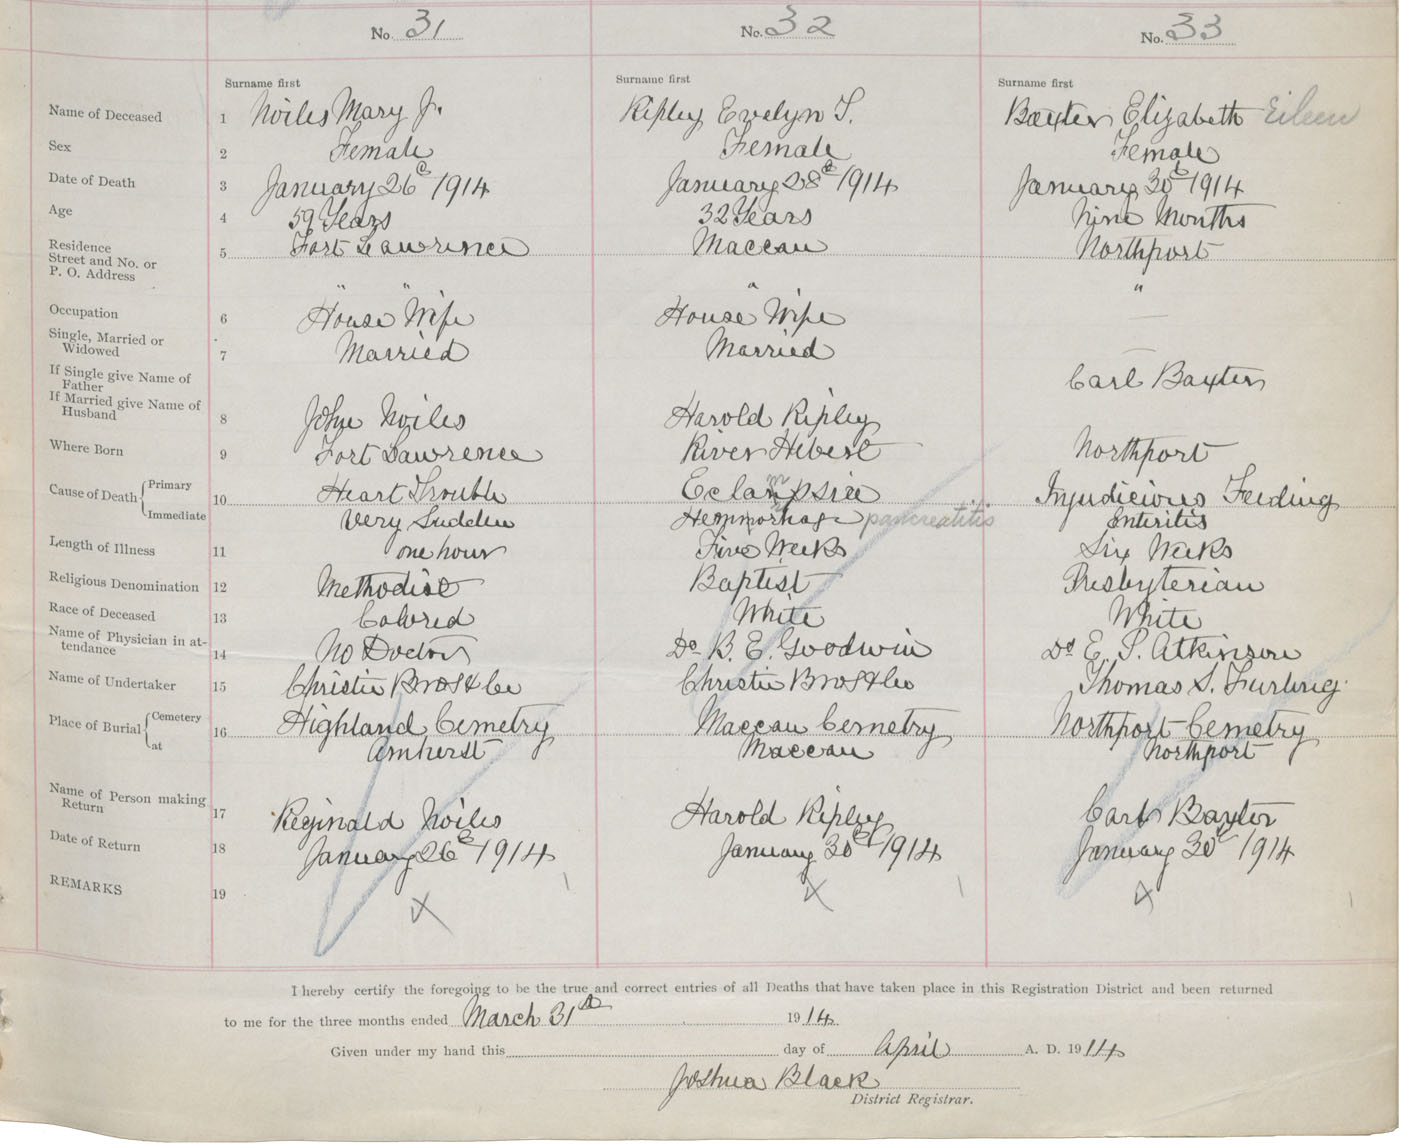 No. 31 No. 32 No. 33
Surname first Surname first Surname first
Name of Deceased 1 Noiles Mary J. Ripley Evelyn T. Baxter Elizabeth Eileen
Sex 2 Female Female Female
Date of Death 3 January 26th 1914 January 28th 1914 January 30th 1914
Age 4 59 Years 32 Years Nine Months
Residence Street and No. or P. O. Address 5 Fort Lawrence Maccan Northport
" " " "
Occupation 6 House Wife House Wife —
Single, Married or Widowed 7 Married Married —
If Single give Name of Father Carl Baxter
If Married give Name of Husband 8 John Noiles Harold Ripley
Where Born 9 Fort Lawrence River Hebert Northport
Cause of Death { Primary 10 Heart Trouble Eclampsia Injudicious Feeding
Immediate Very Sudden Hemmorhage pancreatitis Enteritis
Length of Illness 11 one hour Five Weeks Six Weeks
Religious Denomination 12 Methodist Baptist Presbyterian
Race of Deceased 13 Colored White White
Name of Physician in attendance 14 No Doctor Dr B. E. Goodwin Dr E. P. Atkinson
Name of Undertaker 15 Christie Bros & Co Christie Bros & Co Thomas S. Furlong
Place of Burial { Cemetery 16 Highland Cemetry Maccan Cemetry Northport Cemetry
at Amherst Maccan Northport
Name of Person making Return 17 Reginald Noiles Harold Ripley Carl Baxter
Date of Return 18 January 26th 1914 January 30th 1914 January 30th 1914
REMARKS 19 X X X
I hereby certify the foregoing to be the true and correct entries of all Deaths that have taken place in this Registration District and been returned
to me for the three months ended March 31st 1914
Given under my hand this day of April A. D. 1914
Joshua Black
District Registrar.